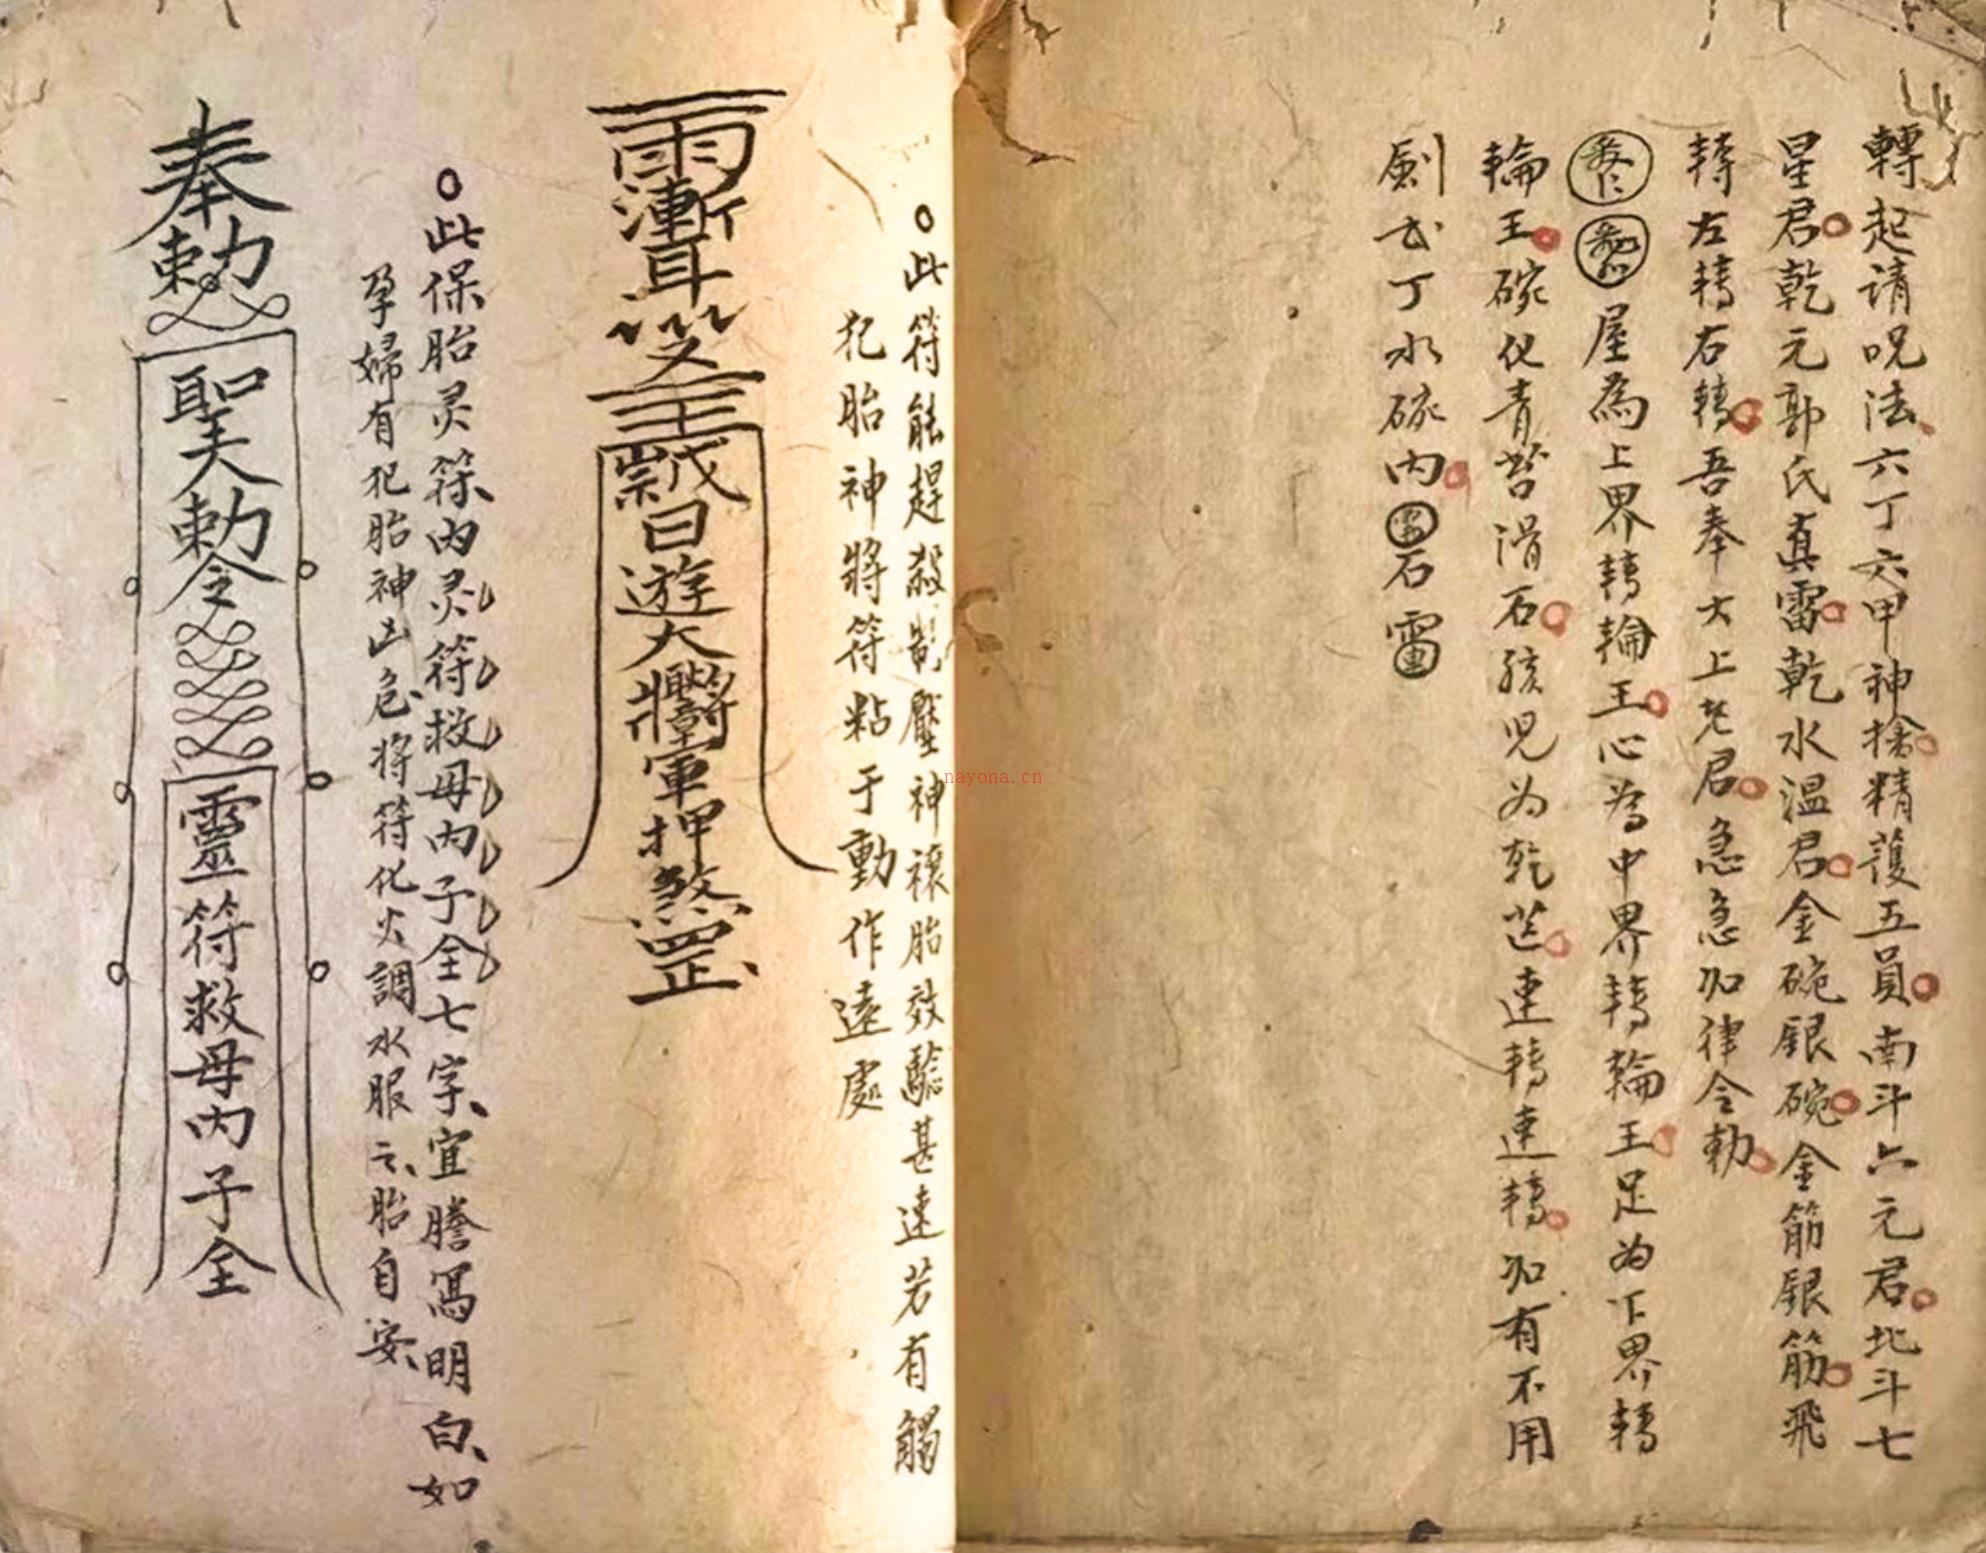 轉起请咒法六丁六甲神搶精護五員南斗六元君北斗七
星君乾元郭氏真雷乾水温君金碗銀碗金筯銀筯飛
轉左轉右轉吾奉大上老君急急如律令勅
屋為上界轉輪王心為中界轉輪王足为下界轉
輪王碗化青苔滑石孩児为乾 速轉速轉如有不用
劍 丁水碗内 石
此符能趕殺 壓神禳胎效驗甚速若有觸
犯胎神將符粘于動作遠處
雨漸耳
日遊大 軍押煞罡
此保胎灵符内灵符救母内子全七字宜謄寫明白如
孕婦有犯胎神凶危将符化火調水服之胎自安
奉勅
聖夫勅令
靈符救母内子全
nayona.cn